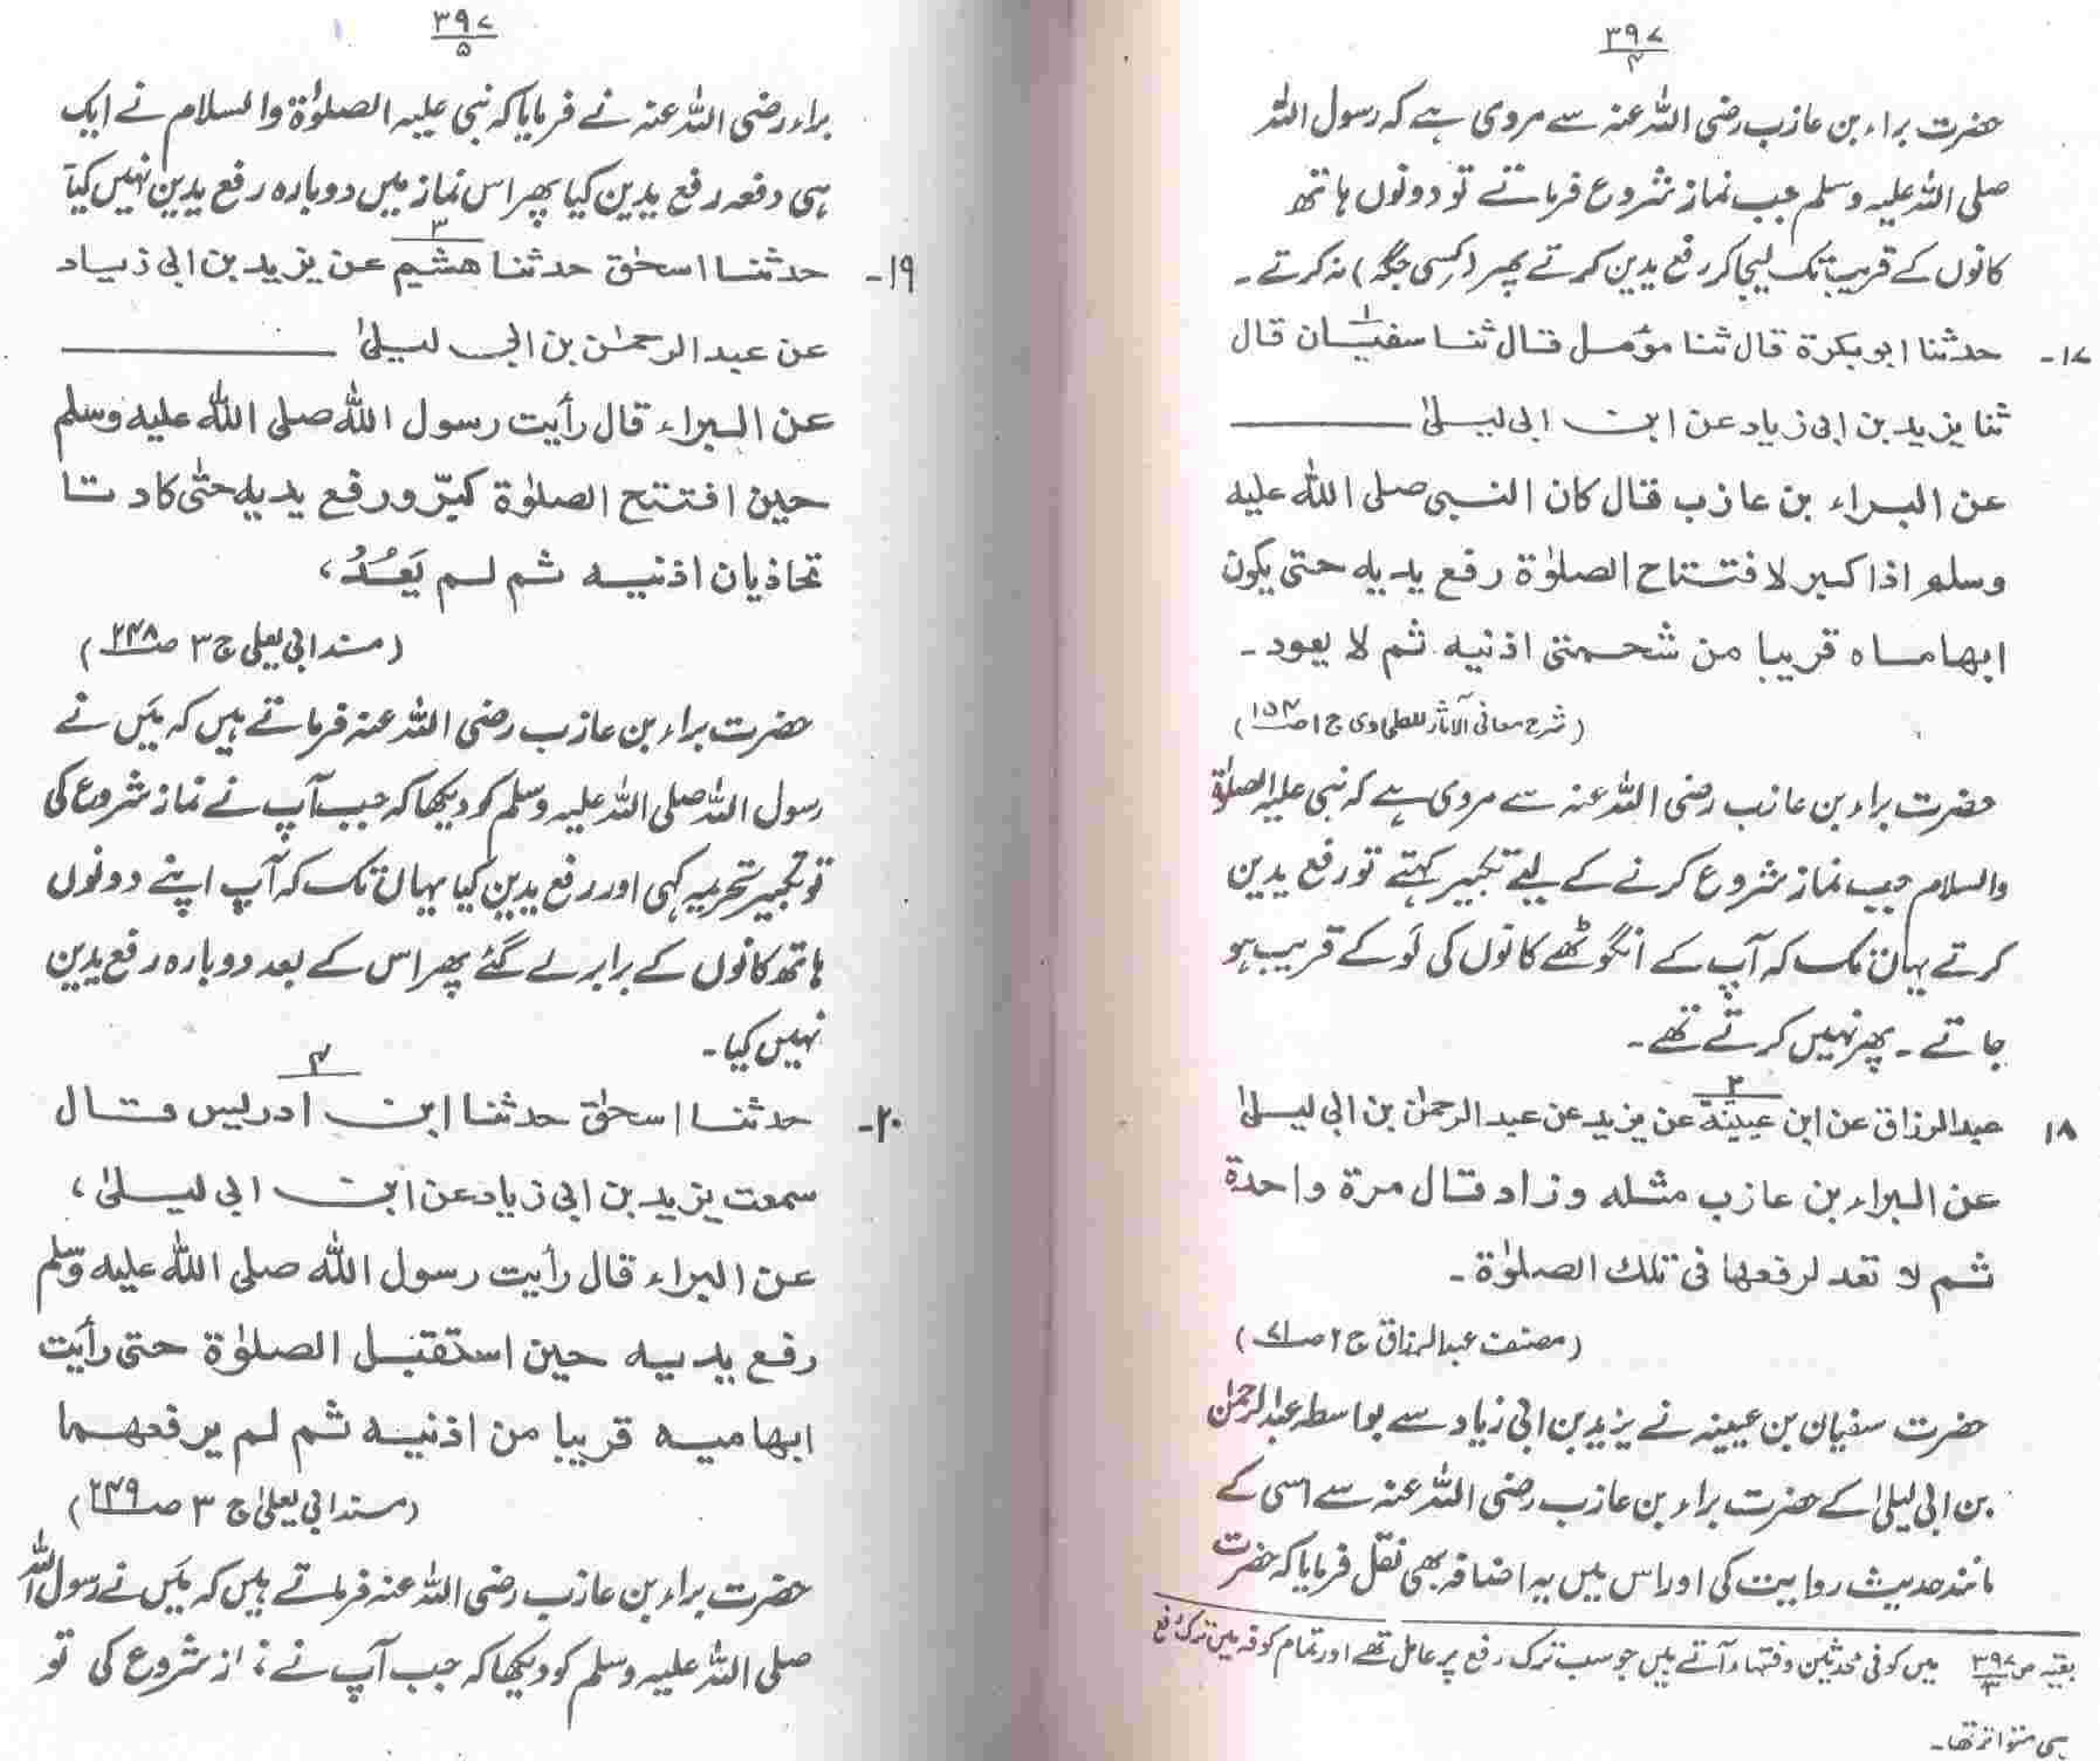 ۳۹۷
۴
حضرت براء بن عازب رضی اللہ عنہ سے مروی ہے کہ رسول اللہ
صلی اللہ علیہ وسلم جب نماز شروع فرماتے تو دونوں ہاتھ
کانوں کے قریب تک لیجا کر رفع یدین کرتے پھر (کسی جگہ) نہ کرتے۔
۱۷- حدثنا ابو بكرة قال ثنا مؤمل قال ثنا سفيان قال
۱
ثنا يزيد بن ابی زياد عن ابن ابی ليلىٰ
عن البراء بن عازب قال كان النبی صلى الله عليه
وسلم اذا كبر لافتتاح الصلوٰة رفع يديه حتى يكون
ابهاماه قريبا من شحمتى اذنيه ثم لا يعود۔
(شرح معانی الآثار للطحاوی ج ۱ ص ۱۵۴)
حضرت براء بن عازب رضی اللہ عنہ سے مروی ہے کہ نبی علیہ الصلوٰۃ
والسلام جب نماز شروع کرنے کے لیے تکبیر کہتے تو رفع یدین
کرتے یہاں تک کہ آپ کے انگوٹھے کانوں کی لَو کے قریب ہو
جاتے۔ پھر نہیں کرتے تھے۔
۲
۱۸ عبدالرزاق عن ابن عيينة عن يزيد عن عبد الرحمٰن بن ابی ليلىٰ
عن البراء بن عازب مثله وزاد قال مرة واحدة
ثم لا تعد لرفعها فی تلك الصلوٰة۔
(مصنف عبدالرزاق ج ۲ ص ۷۱)
حضرت سفیان بن عیینہ نے یزید بن ابی زیاد سے بواسطہ عبدالرحمٰن
بن ابی لیلیٰ کے حضرت براء بن عازب رضی اللہ عنہ سے اسی کے
مانند حدیث روایت کی اور اس میں یہ اضافہ بھی نقل فرمایا کہ حضرت
بقیہ ص ۳۹۷/۳ میں کوفی محدثین و فقہاء آتے ہیں جو سب ترک رفع پر عامل تھے اور تمام کوفہ میں ترک رفع
ہی متواتر تھا۔
۳۹۷
۵
براء رضی اللہ عنہ نے فرمایا کہ نبی علیہ الصلوٰۃ والسلام نے ایک
ہی دفعہ رفع یدین کیا پھر اس نماز میں دوبارہ رفع یدین نہیں کیا
۳
۱۹- حدثنا اسحٰق حدثنا هشيم عن يزيد بن ابی زياد
عن عبد الرحمٰن بن ابی ليلىٰ
عن البراء قال رأيت رسول الله صلى الله عليه وسلم
حين افتتح الصلوٰة كبّر ورفع يديه حتى كادتا
تحاذيان اذنيه ثم لم يَعُدُ،
(مسند ابی یعلی ج ۳ ص ۲۴۸)
حضرت براء بن عازب رضی اللہ عنہ فرماتے ہیں کہ میَں نے
رسول اللہ صلی اللہ علیہ وسلم کو دیکھا کہ جب آپ نے نماز شروع کی
تو تکبیر تحریمہ کہی اور رفع یدین کیا یہاں تک کہ آپ اپنے دونوں
ہاتھ کانوں کے برابر لے گئے پھر اس کے بعد دوبارہ رفع یدین
نہیں کیا۔
۴
۲۰- حدثنا اسحٰق حدثنا ابن ادريس قال
سمعت يزيد بن ابی زياد عن ابن ابی ليلىٰ،
عن البراء قال رأيت رسول الله صلى الله عليه وسلم
رفع يديه حين استقبل الصلوٰة حتى رأيت
ابهاميه قريبا من اذنيه ثم لم يرفعهما
(مسند ابی یعلیٰ ج ۳ ص ۲۴۹)
حضرت براء بن عازب رضی اللہ عنہ فرماتے ہیں کہ میَں نے رسول اللہ
صلی اللہ علیہ وسلم کو دیکھا کہ جب آپ نے نماز شروع کی تو